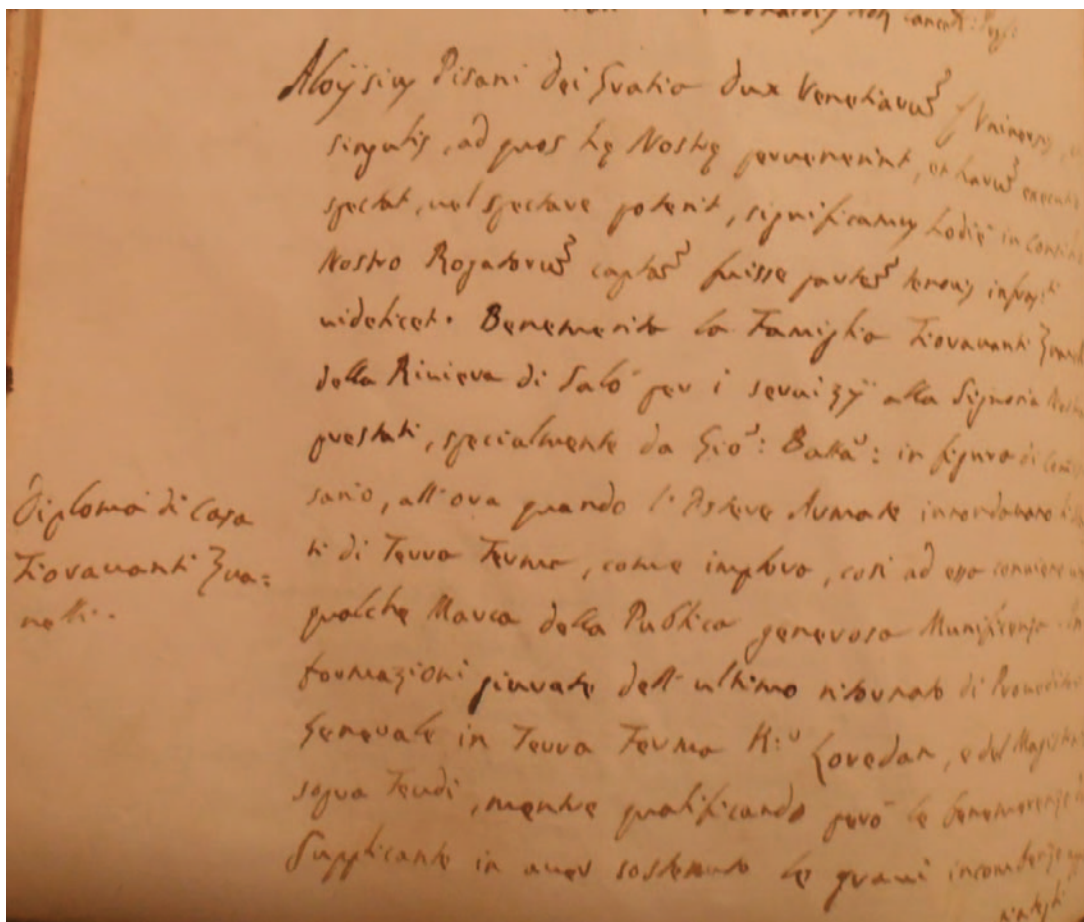 Donatis non cancell: Seg:
Aloÿsius Pisani Dei Gratia Dux Venetiarum Universis, et
singulis, ad quos hę Nostrę pervenerint, et harum executio
spectat, vel spectare poterit, significamus hodie in Consilio
Nostro Rogatorum captam fuisse partem tenoris infrascripti
videlicet. Benemerita la Famiglia Fioravanti Zuanelli
della Riviera di Salò per i servizÿ alla Signoria Nostra
prestati, specialmente da Gio: Batta: in figura di Comis
sario, all'ora quando l'Estere Armate innondarono
ti di Terra Ferma, come implora, così ad essa conviene
Diploma di Casa
Fioravanti Zua=
nelli.
qualche Marca della Publica generosa Munificenza. In
formazioni giurate dell'ultimo ritornato di Proveditor
Generale in Terra Ferma K:r Loredan, e del Magistrato
sopra Feudi, mentre qualificando però le benemerenze del
Supplicante in aver sostenuto le gravi incombenze